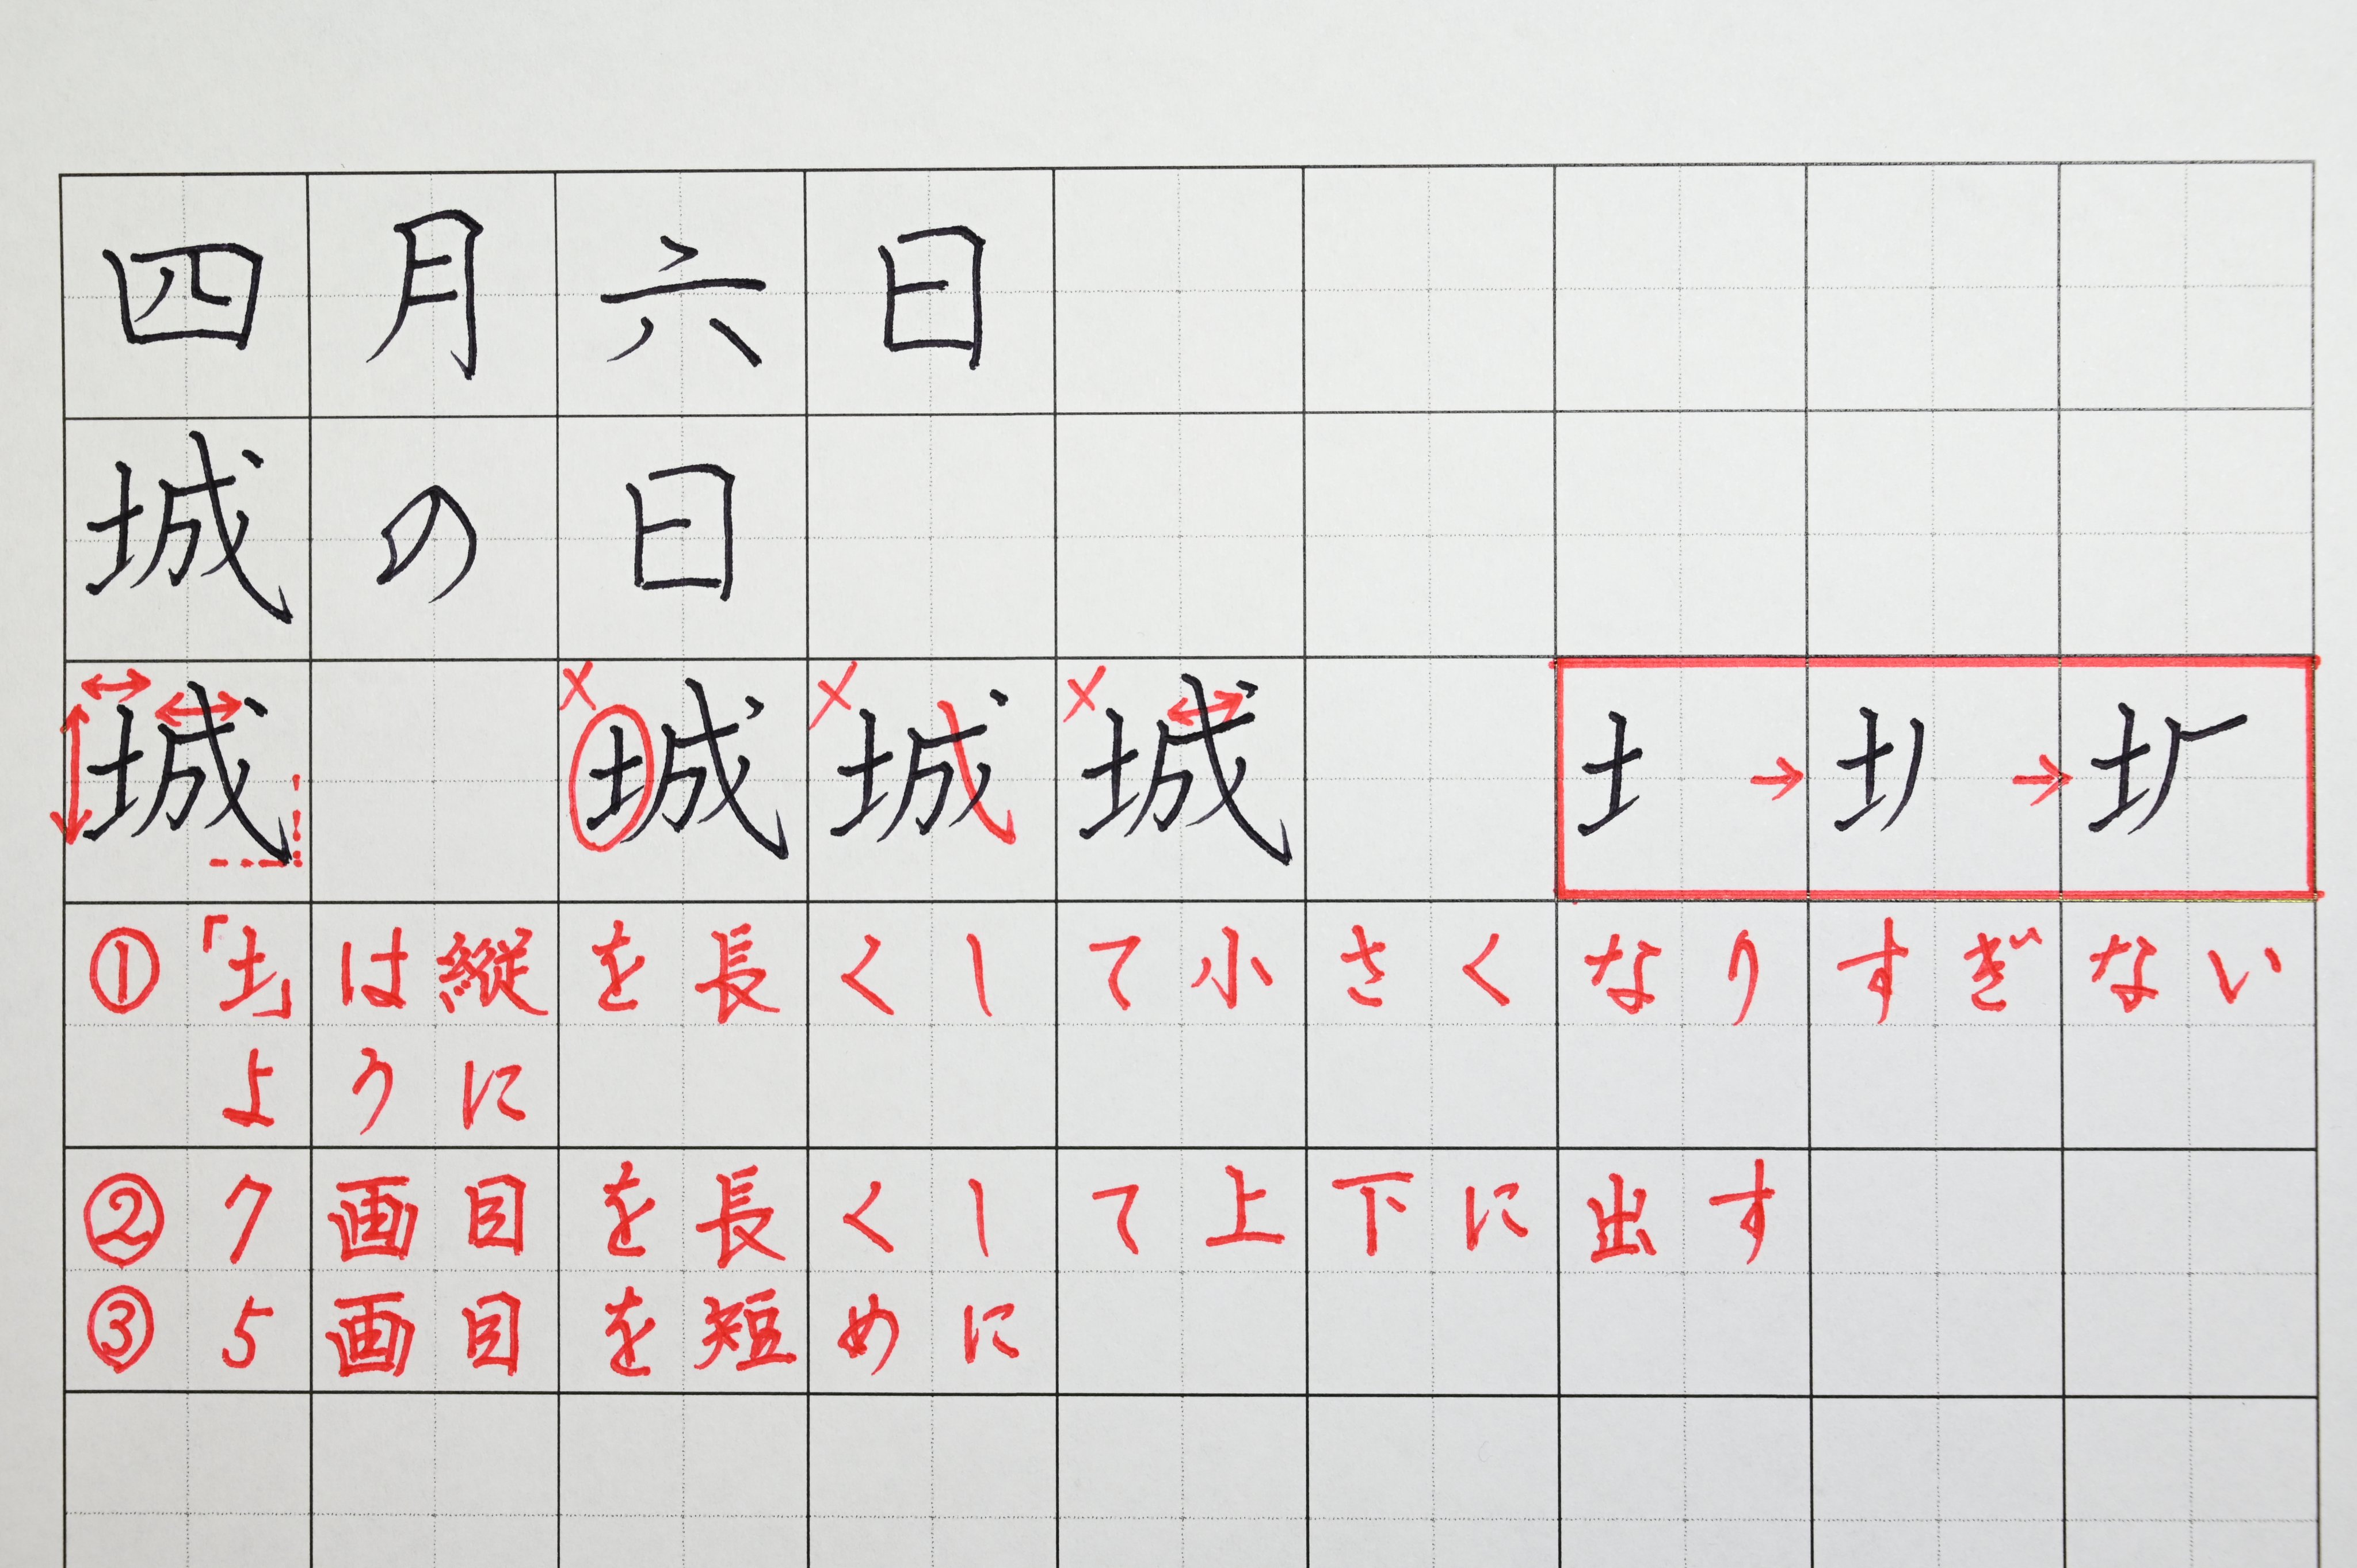 四月六日
城の日
城 × 城 × 城 × 城 土 → 圹 → 圹
①「土」は縦を長くして小さくなりすぎない
ように
②7画目を長くして上下に出す
③5画目を短めに